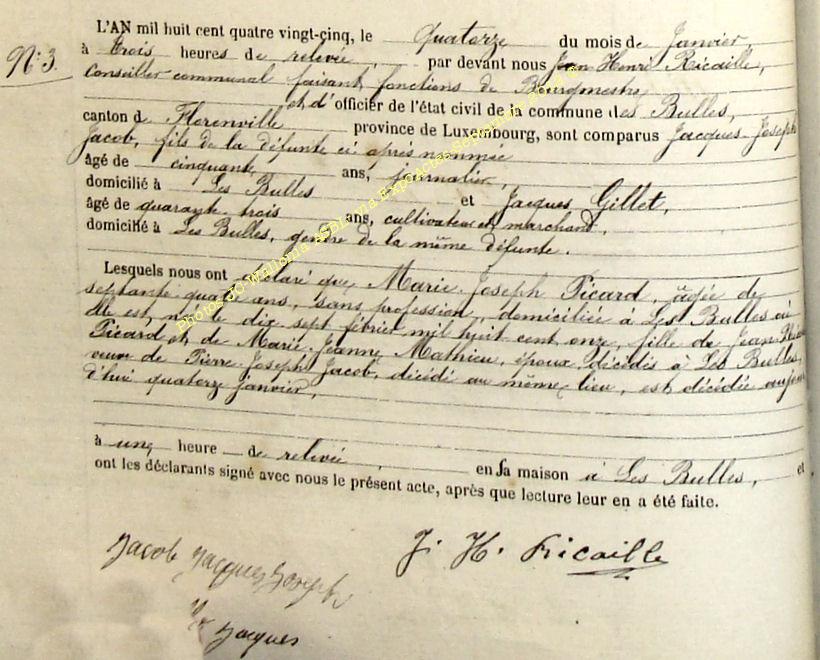 L'AN mil huit cent quatre vingt-cinq, le quatorze du mois de Janvier
N° 3.
à trois heures de relevée, par devant nous Jean Henri Ricaille,
conseiller communal faisant fonctions de Bourgmestre
et d'officier de l'état civil de la commune des Bulles,
canton d Florenville province de Luxembourg, sont comparus Jacques-Joseph
Jacob, fils de la défunte ci après nommée
âgé de cinquante ans, journalier,
domicilié à Les Bulles et Jacques Gillet,
âgé de quarante trois ans, cultivateur et marchand,
domicilié à Les Bulles, gendre de la même défunte.
Lesquels nous ont déclaré que Marie Joseph Picard, âgée de
septante-quatre ans, sans profession, domiciliée à Les Bulles où
elle est née le dix sept février mil huit cent onze, fille de Jean
Picard et de Marie-Jeanne Mathieu, époux, décédés à Les Bulles,
veuve de Pierre-Joseph Jacob, décédé au même lieu, est décédée aujour
d'hui quatorze janvier,
à une heure de relevée, en sa maison à Les Bulles, et
ont les déclarants signé avec nous le présent acte, après que lecture leur en a été faite.
Jacob Jacques Joseph
J. H. Ricaille
Jacques